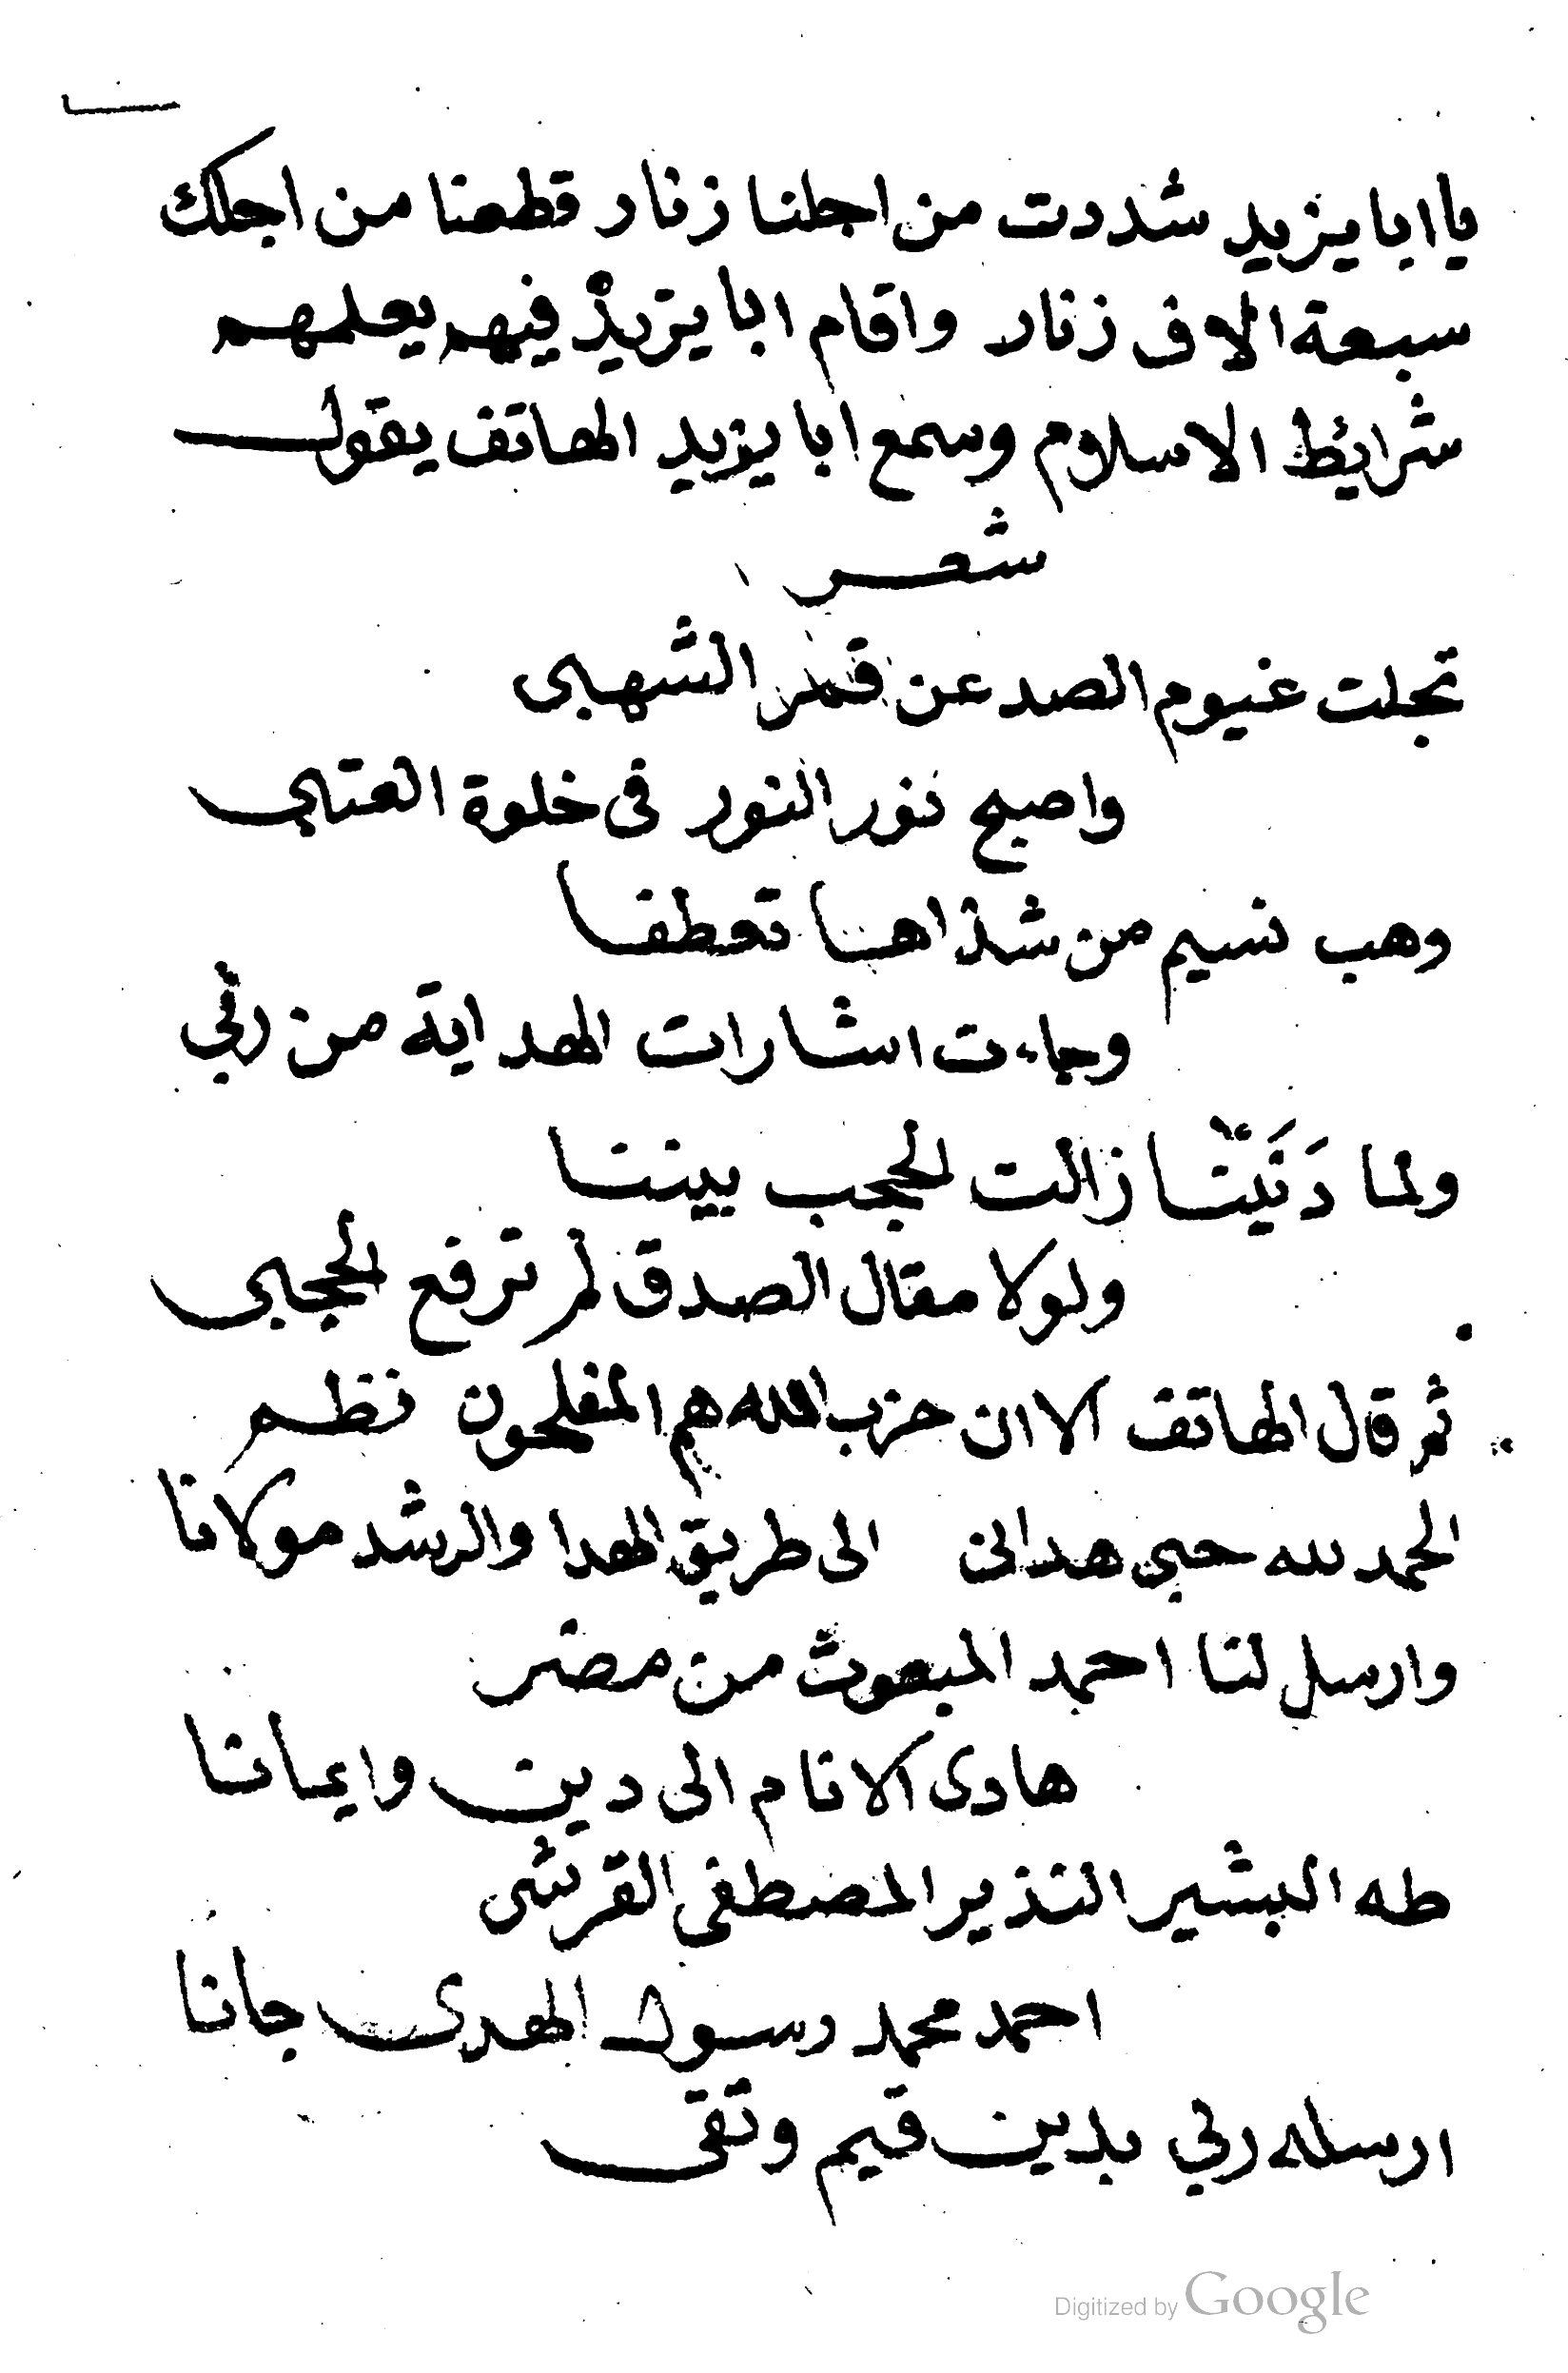 يا ابا يزيد شددت من اجلنا زنار قطعنا من اجلك
سبعة الاف زنار واقام ابا يزيد فيهم يعلمهم
شرائط الاسلام وسمع ابا يزيد الهاتف يقول
شعر
تجلت غيوم الصد عن قمر الشهبى
واصبح نور النور فى خلوة العتبي
وهب نسيم من شذاها تعطفا
وجاءت اشارات الهداية من ربي
ولما دنيتا زالت الحجب بيننا
ولولا مقال الصدق لم ترفع الحجبى
ثم قال الهاتف الا ان حزب الله هم المفلحون نظم
الحمد لله حبي هدانى الى طريق الهدا والرشد مولانا
وارسل لنا احمد المبعوث من مضر
هادى الانام الى دين وايمانا
طه البشير النذير المصطفى القرشى
احمد محمد رسول الهدى جانا
ارسله ربي بدين قيم وتقى
Digitized by Google